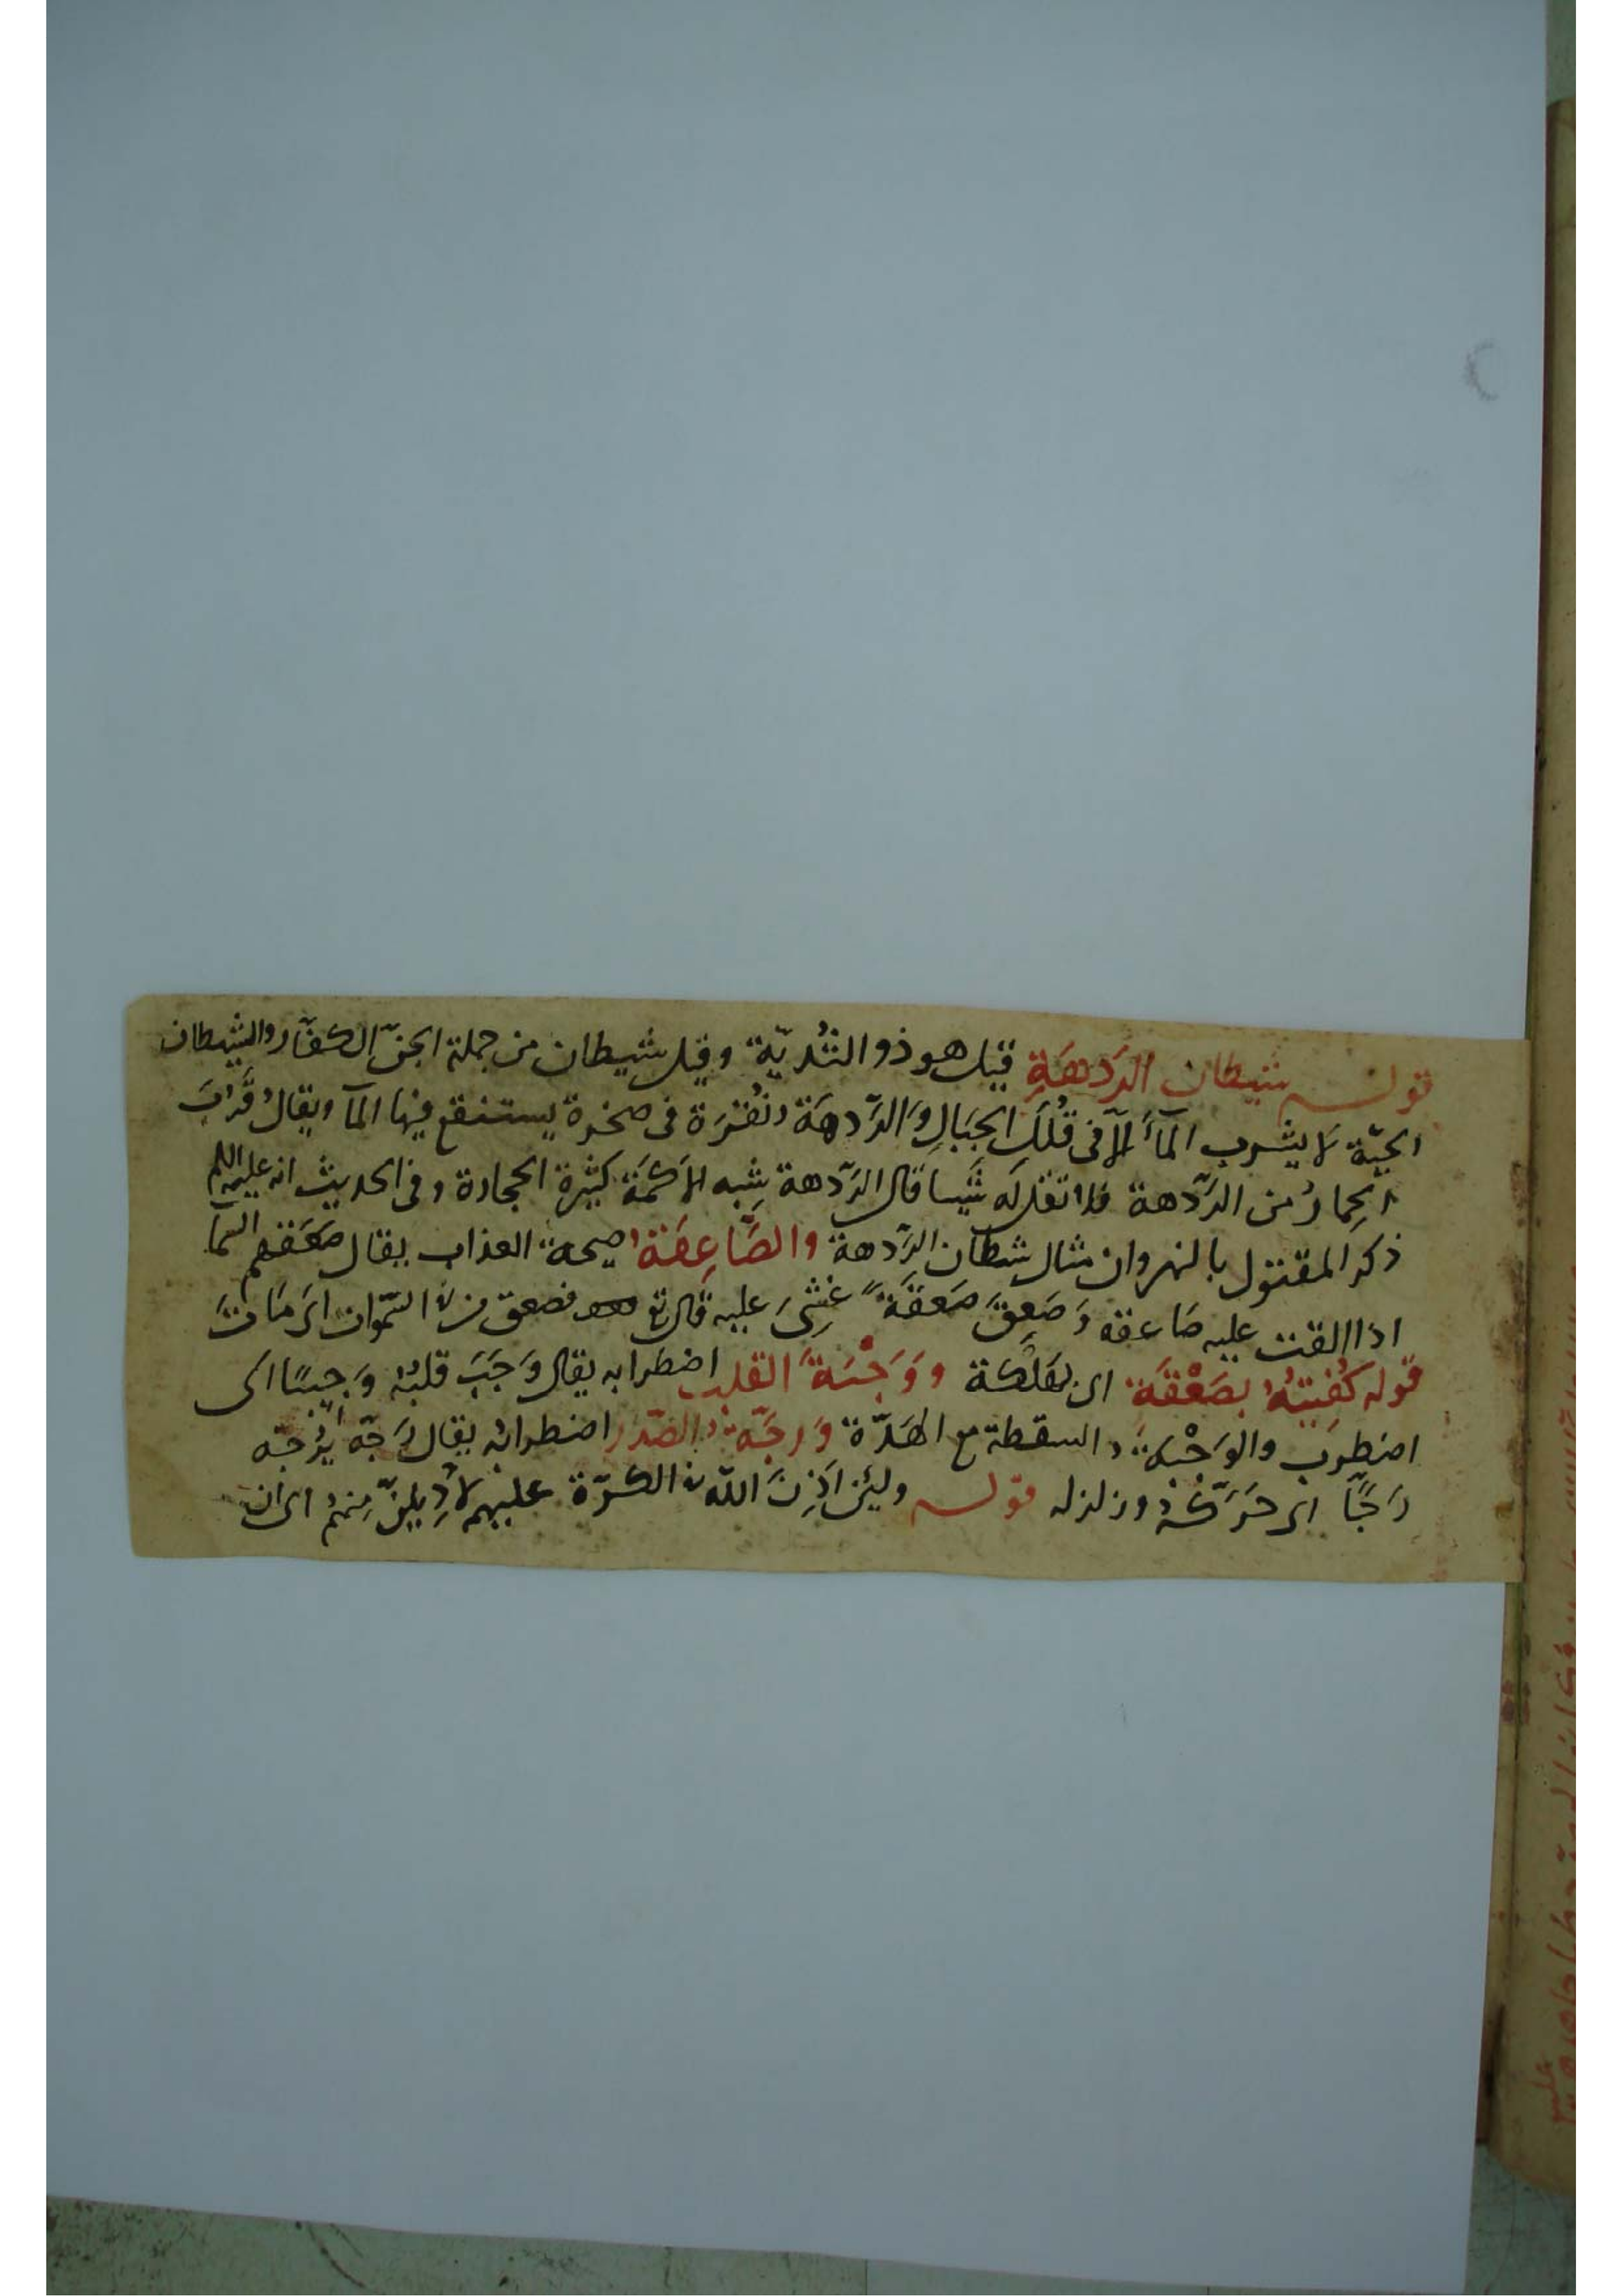 قوله شيطان الرَّدهَةِ قيل هو ذو الثُّدَيّة وقيل شيطان من جملة الجنّ الكفّار والشيطان
الحيّة لا يشرب المآءَ الّا في قُلَلِ الجبَالِ وَالرَّدهَة نُقرَة في صخرة يستنقع فيها المآ ويقال قَرَّب
الحِمارُ من الرَّدهة فلا تقل لَه شَيسا قال الرَّدهة شِبه الاكَمَة كثيرة الحجارة وفي الحديث انه عليه السلم
ذكر المقتول بالنهروان مثال شيطان الرَّدهة والصَّاعِقَة صيحة العذاب يقال صَعَقتهم السّمآ
اذا القت عليه صَاعقه وَصَعِقَ صَعقَةً غُشِىَ عليه قال تع فصعق من في السّموات اي مَاتَ
قوله كُفِيتُهُ بِصَعْقَة اى بهَلَكة وَوَجْبَةُ القلب اضطرابه يقال وَجَبَ قلبُهُ وَجِيبًا اى
اضطرَب والوَجْبَة السقطة مع الهَدّة وَرجّة الصّدر اضطرابه يقال رَجّه يَرُجّه
رَجًّا اى حَرّكَهُ وزلزله قوله ولئِن اَذِنَ اللّه في الكرّة عليهم لأديلنّ مِنهُم اى ان